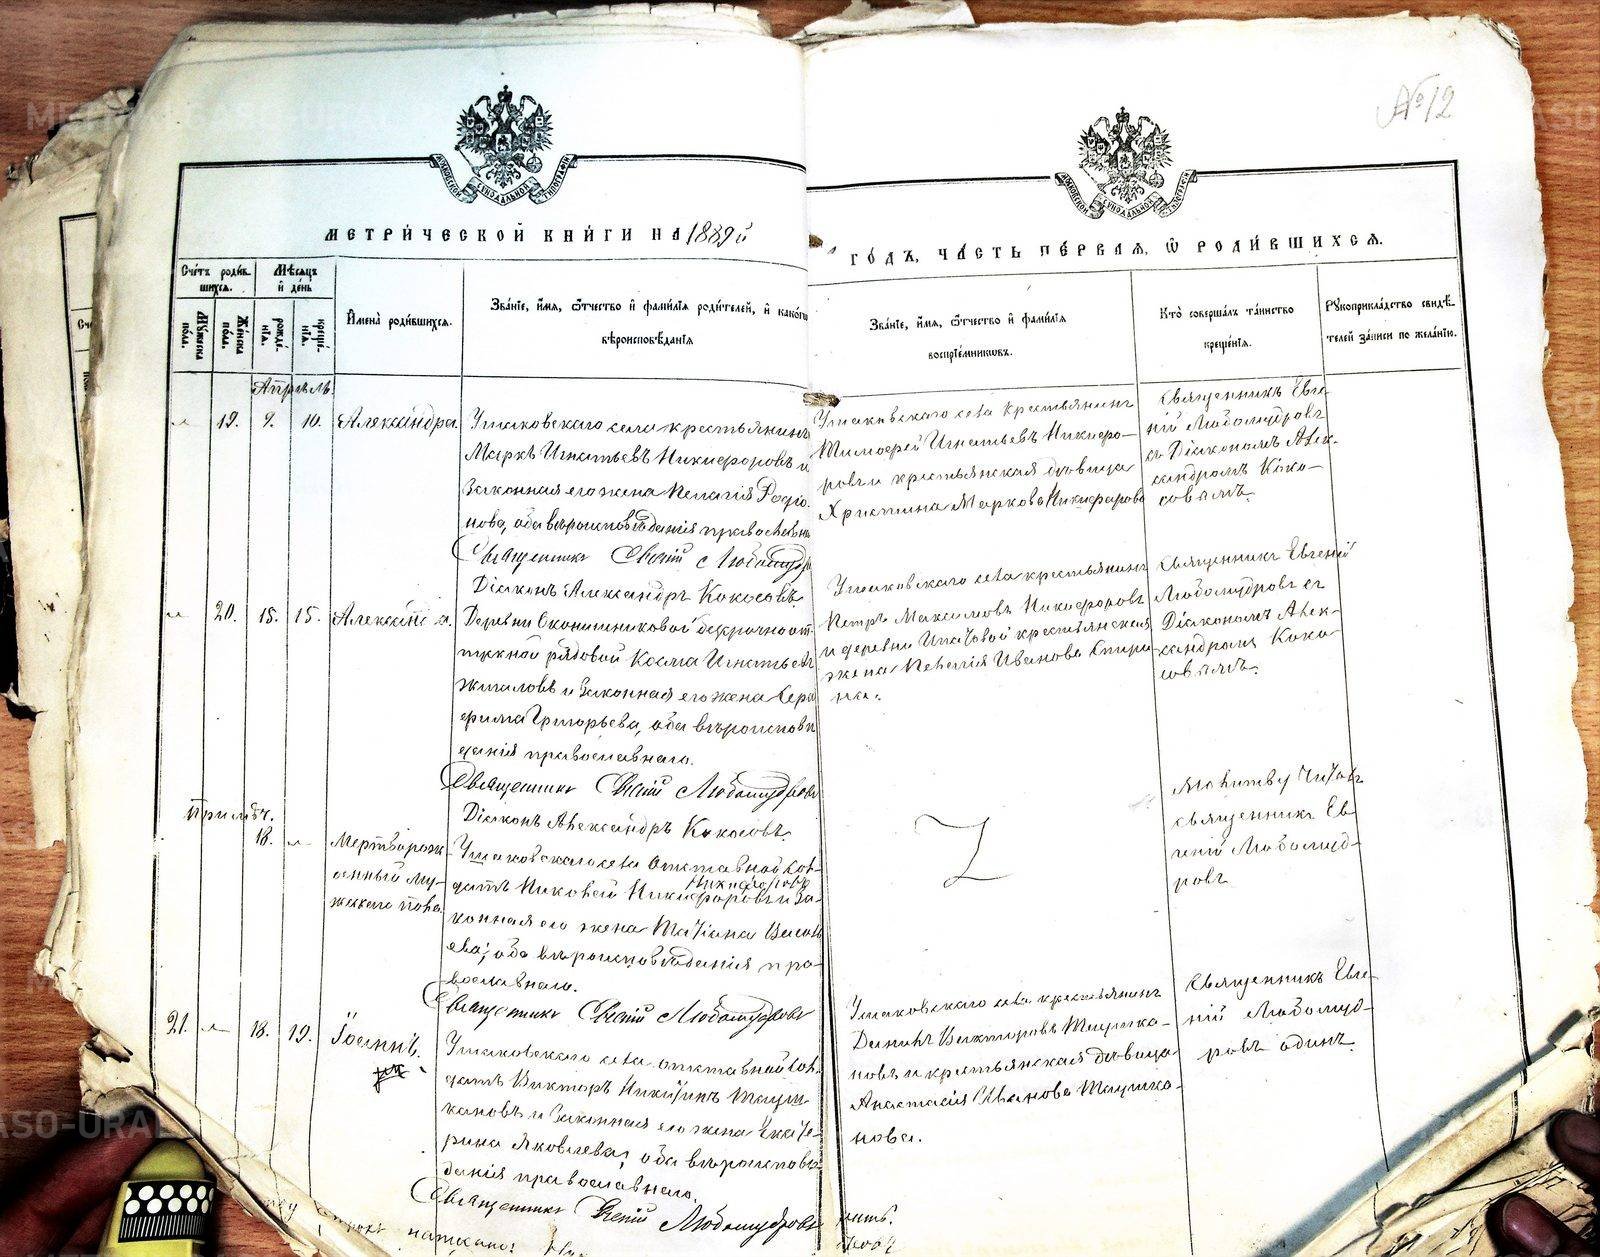 № 12
МЕТРИ́ЧЕСКОЙ КНИ́ГИ НА 1889й
ГО́ДЪ, ЧА́СТЬ ПЕ́РВАЯ, Ѡ РОДИ́ВШИХСЯ.
Сче́тъ роди́в-
шихся.
Мѣ́сяцъ
и де́нь
Му́жеска
по́ла.
Же́нска
по́ла.
рожде́-
нїя.
креще́-
нїя.
Имена̀ роди́вшихся.
Зва́нїе, и́мя, ѻ́тчество и фами́лїя роди́телей, и како́гѡ
вѣроисповѣ́данїя
Зва́нїе, и́мя, ѻ́тчество и фами́лїя
воспрїе́мниковъ.
Кто̀ соверша́лъ та́инство
креще́нїя.
Рукоприкла́дство свидѣ́-
телей за́писи по жела́нїю.
Апрѣль.
19. 9. 10. Александра.
Ушаковскаго села крестьянинъ
Маркъ Игнатьевъ Никифоровъ и
законная его жена Пелагія Родіо-
нова, оба вѣроисповѣданія православн
Священникъ Евгеній Любомудровъ
Діаконъ Александръ Кокосовъ.
Ушаковскаго села крестьянинъ
Тимофей Игнатьевъ Никифо-
ровъ и крестьянская дѣвица
Христина Маркова Никифорова
Священникъ Евге-
ній Любомудровъ
съ Діакономъ Алек-
сандромъ Коко-
совымъ.
20. 15. 15.
Деревни безсрочноот-
пускной рядовой Косма Игнатьевъ
Жигаловъ и законная его жена Сера
фима Григорьева, оба вѣроисповѣ
данія православнаго.
Священникъ Евгеній Любомудровъ
Діаконъ Александръ Кокосовъ.
Ушаковскаго села крестьянинъ
Петръ Максимовъ Никифоровъ
и деревни крестьянская
жена Пелагія Иванова Спири-
на.
Священникъ Евгеній
Любомудровъ съ
Діакономъ Алек-
сандромъ Коко-
совымъ.
Примѣч.
18. Мертворож-
денный му-
жескаго пола.
Ушаковскаго села отставной сол-
Никифоровъ
датъ Николай Никифоровъ и за-
конная его жена Татіана Василь
ева; оба вѣроисповѣданія пра-
вославнаго.
Священникъ Евгеній Любомудровъ
Z
Молитву читалъ
священникъ Ев-
геній Любомуд-
ровъ
21. 18. 19. Іоаннъ.
Ушаковскаго села отставной сол-
датъ Викторъ Никитинъ Таушка-
кановъ и законная его жена Екате-
рина Яковлева, оба вѣроисповѣ-
данія православнаго.
Священникъ Евгеній Любомудровъ
Ушаковскаго села крестьянинъ
Данилъ Викторовъ Таушка-
новъ и крестьянская дѣвица
Анастасія Иванова Таушка-
нова.
Священникъ Евге-
ній Любомуд-
ровъ одинъ.